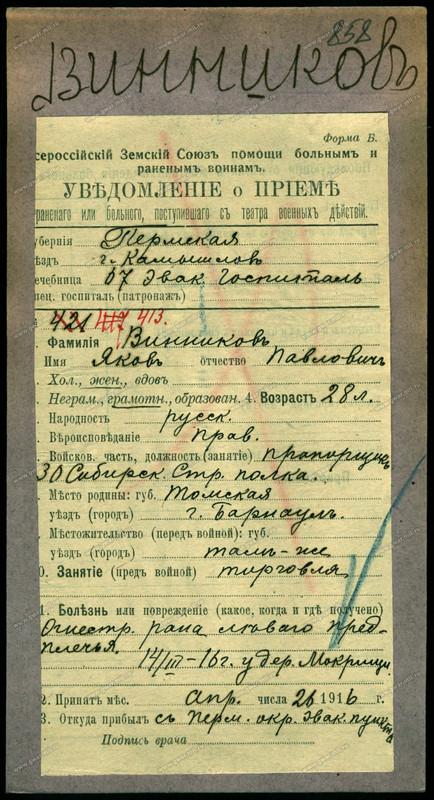 858
Винниковъ
Форма Б.
сероссійскій Земскій Союзъ помощи больнымъ и
раненымъ воинамъ.
УВѢДОМЛЕНІЕ о ПРІЕМѢ
раненаго или больного, поступившаго съ театра военныхъ дѣйствій.
уберніа Пермская
ѣздъ г. Камышловъ
ечебница 57 Эвак. Госпиталь
пец. госпиталь (патронажъ)
421 417 413.
Фамилія Винниковъ
Имя Яковъ отчество Павловичъ
Хол., жен., вдов.
Неграм., грамотн., образован. 4. Возрастъ 28 л.
Народность русск.
Вѣроисповѣданіе прав.
Войсков. часть, должность (занятіе) прапорщикъ
30 Сибирск. Стр. полка.
Мѣсто родины: губ. Томская
уѣздъ (городъ) г. Барнаулъ.
Мѣстожительство (передъ войной): губ.
уѣздъ (городъ) тамъ-же
0. Занятіе (предъ войной) торговля
1. Болѣзнь или поврежденіе (какое, когда и гдѣ получено)
Огнестр. рана лѣваго пред-
плечья. 14/III-16 г. у дер. Мокрицы.
2. Принятъ мѣс. апр. числа 26 1916 г.
3. Откуда прибылъ съ Перм. окр. эвак. пункта
Подпись врача